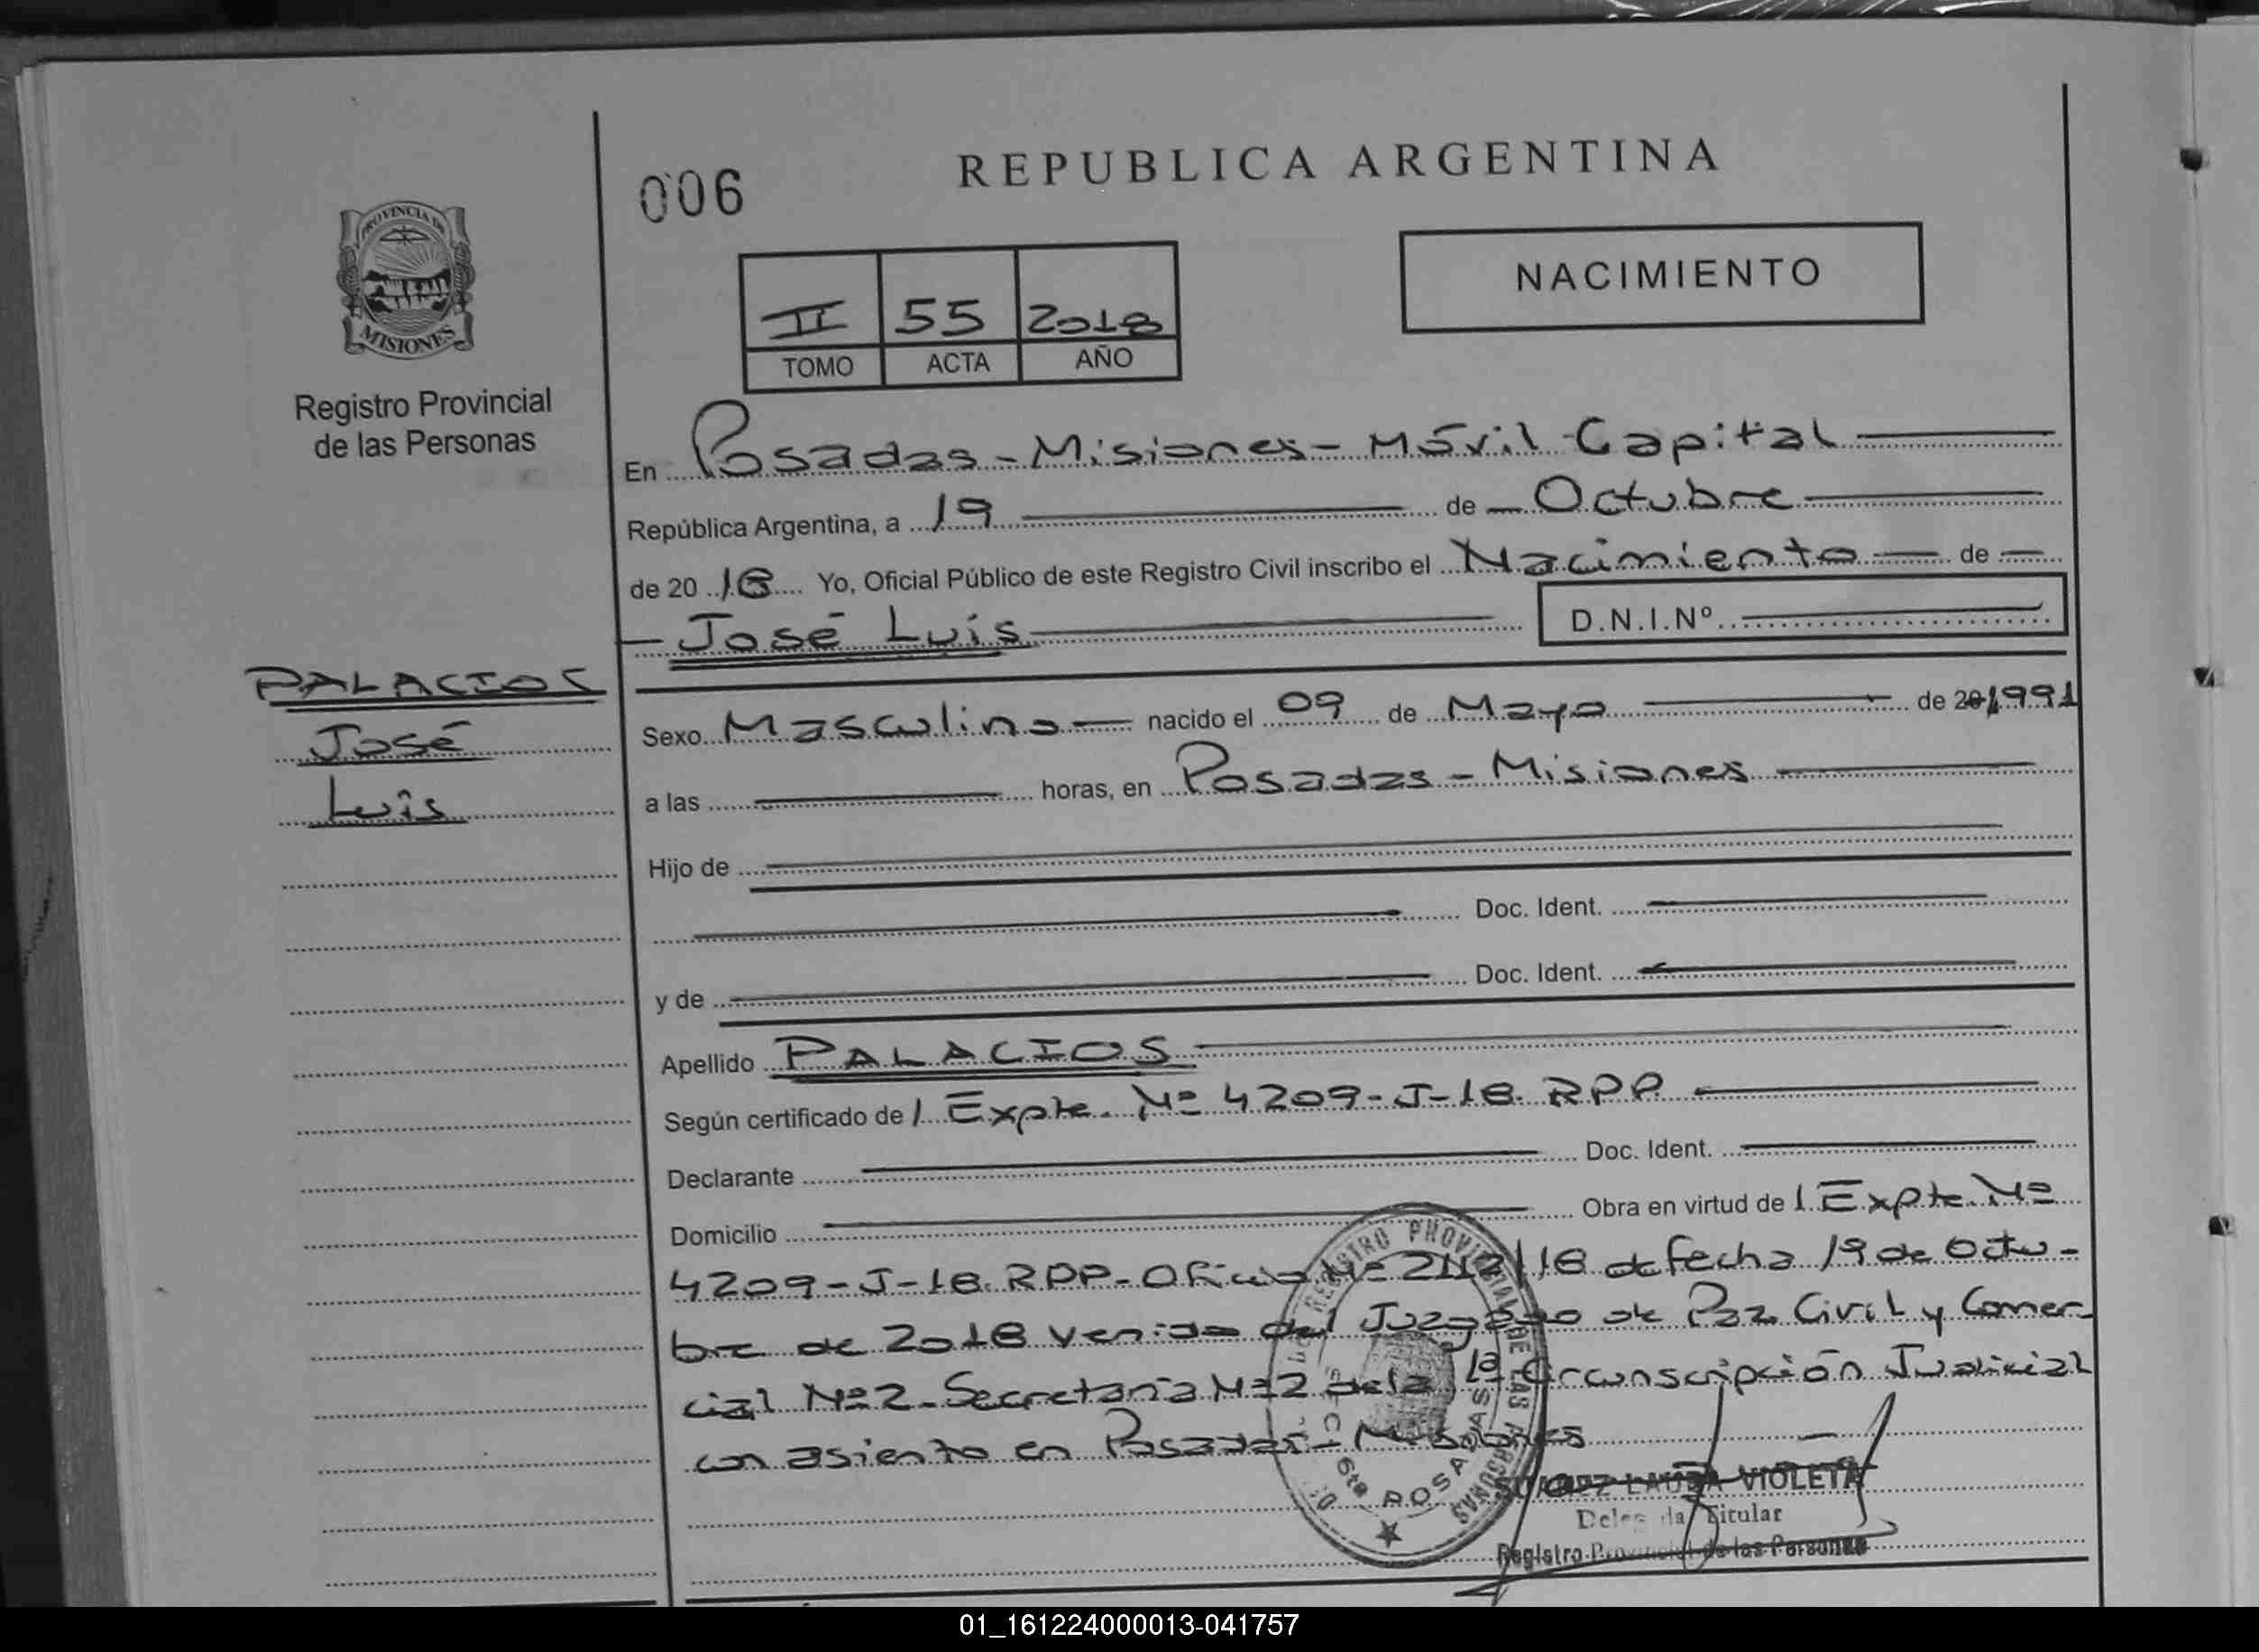 REPUBLICA ARGENTINA
006
PROVINCIA DE
MISIONES
Registro Provincial
de las Personas
NACIMIENTO
II 55 2018
TOMO ACTA AÑO
En Posadas - Misiones - Móvil Capital
República Argentina, a 19 de Octubre
de 20 18 Yo, Oficial Público de este Registro Civil inscribo el Nacimiento de
José Luis D.N.I.Nº
PALACIOS
José
Luis
Sexo Masculino nacido el 09 de Mayo de 20 1991
a las horas, en Posadas - Misiones
Hijo de
Doc. Ident.
y de Doc. Ident.
Apellido PALACIOS
Según certificado de / Expte. Nº 4209-J-18. RPP
Declarante Doc. Ident.
Domicilio Obra en virtud de / Expte. Nº
4209-J-18. RPP- Oficio Nº /18 de fecha 19 de Octu-
bre de 2018 venido del Juzgado de Paz Civil y Comer-
cial Nº 2 - Secretaría Nº 2 de la 1ª Circunscripción Judicial
con asiento en Posadas - Misiones
REGISTRO PROVINCIAL DE LAS PERSONAS
6ta POSADAS
SUAREZ LAURA VIOLETA
Delegada Titular
Registro Provincial de las Personas
01_161224000013-041757